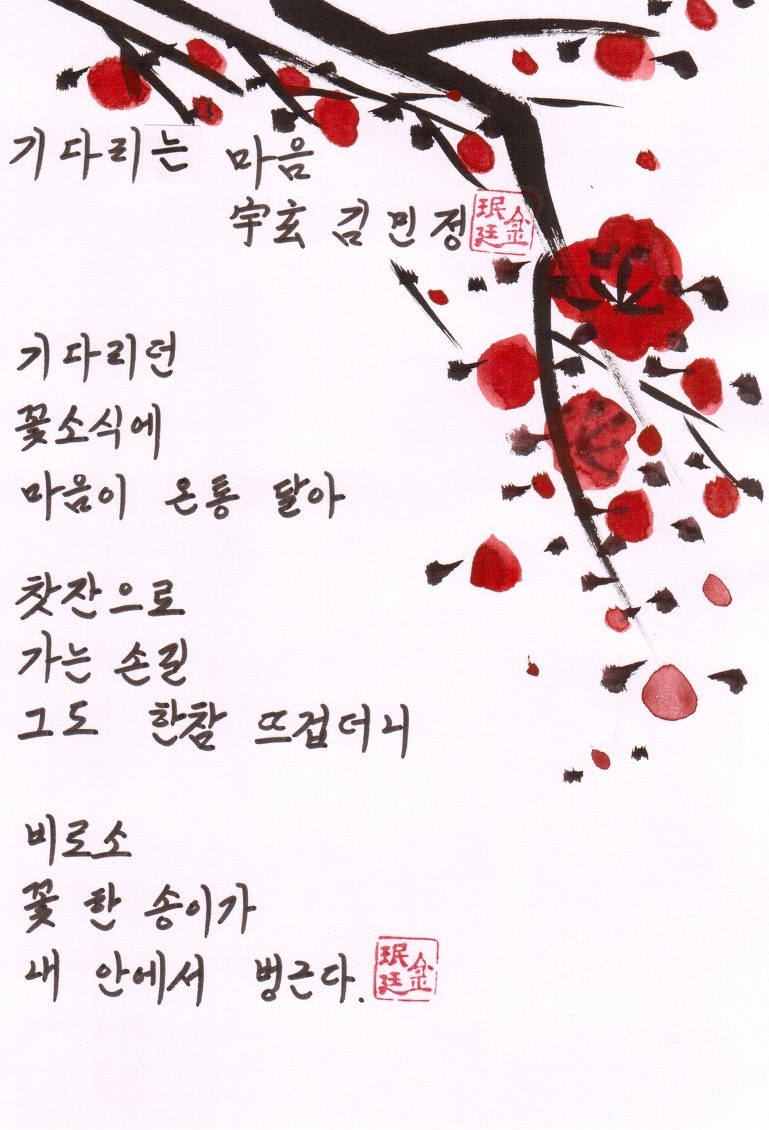 기다리는 마음
宇玄 김민정
珉廷 金
기다리던
꽃소식에
마음이 온통 달아
찻잔으로
가는 손길
그도 한참 뜨겁더니
비로소
꽃 한 송이가
내 안에서 벙근다.
珉廷 金